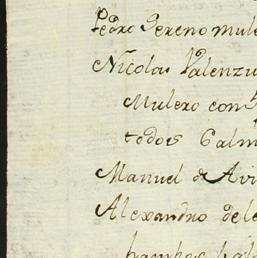 Pedro Sereno mule
Nicolas Valenzu
Mulero con
todos Calm
Manuel de Avi
Alexandro dele
hambos bal